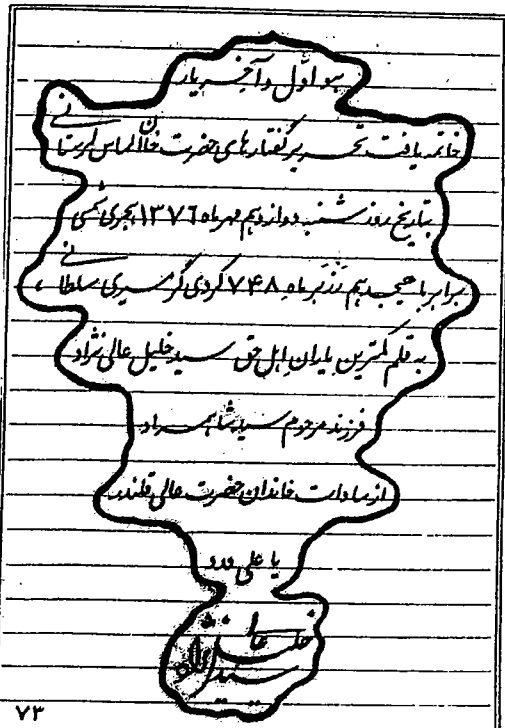 هو اوّل و آخر یار
خاتمه یافت تحریر گفتارهای حضرت خان الماس لرستانی
بتاریخ روز شنبه دوازدهم مهرماه ۱۳۷۶ هجری شمسی
برابر با هیجدهم نَنَبرماه ۷۴۸ کردی گرمسیری سلطانی
به قلم کمترین یاران اهل حق سید خلیل عالی نژاد
فرزند مرحوم سید شاهمراد
از سادات خاندان حضرت عالی قلندر
یا علی مدد
سید خلیل عالی نژاد
۷۳